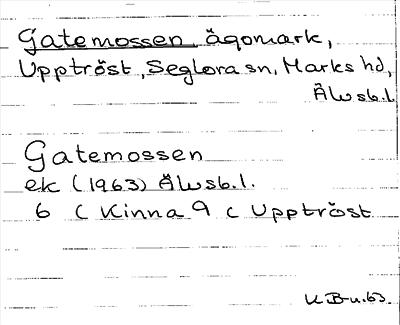 Gatemossen ägomark,
Upptröst, Seglora sn, Marks hd,
Älvsb.l.
Gatemossen
ek (1963) Älvsb.l.
6 C Kinna 9 c Upptröst
KB-u.63.